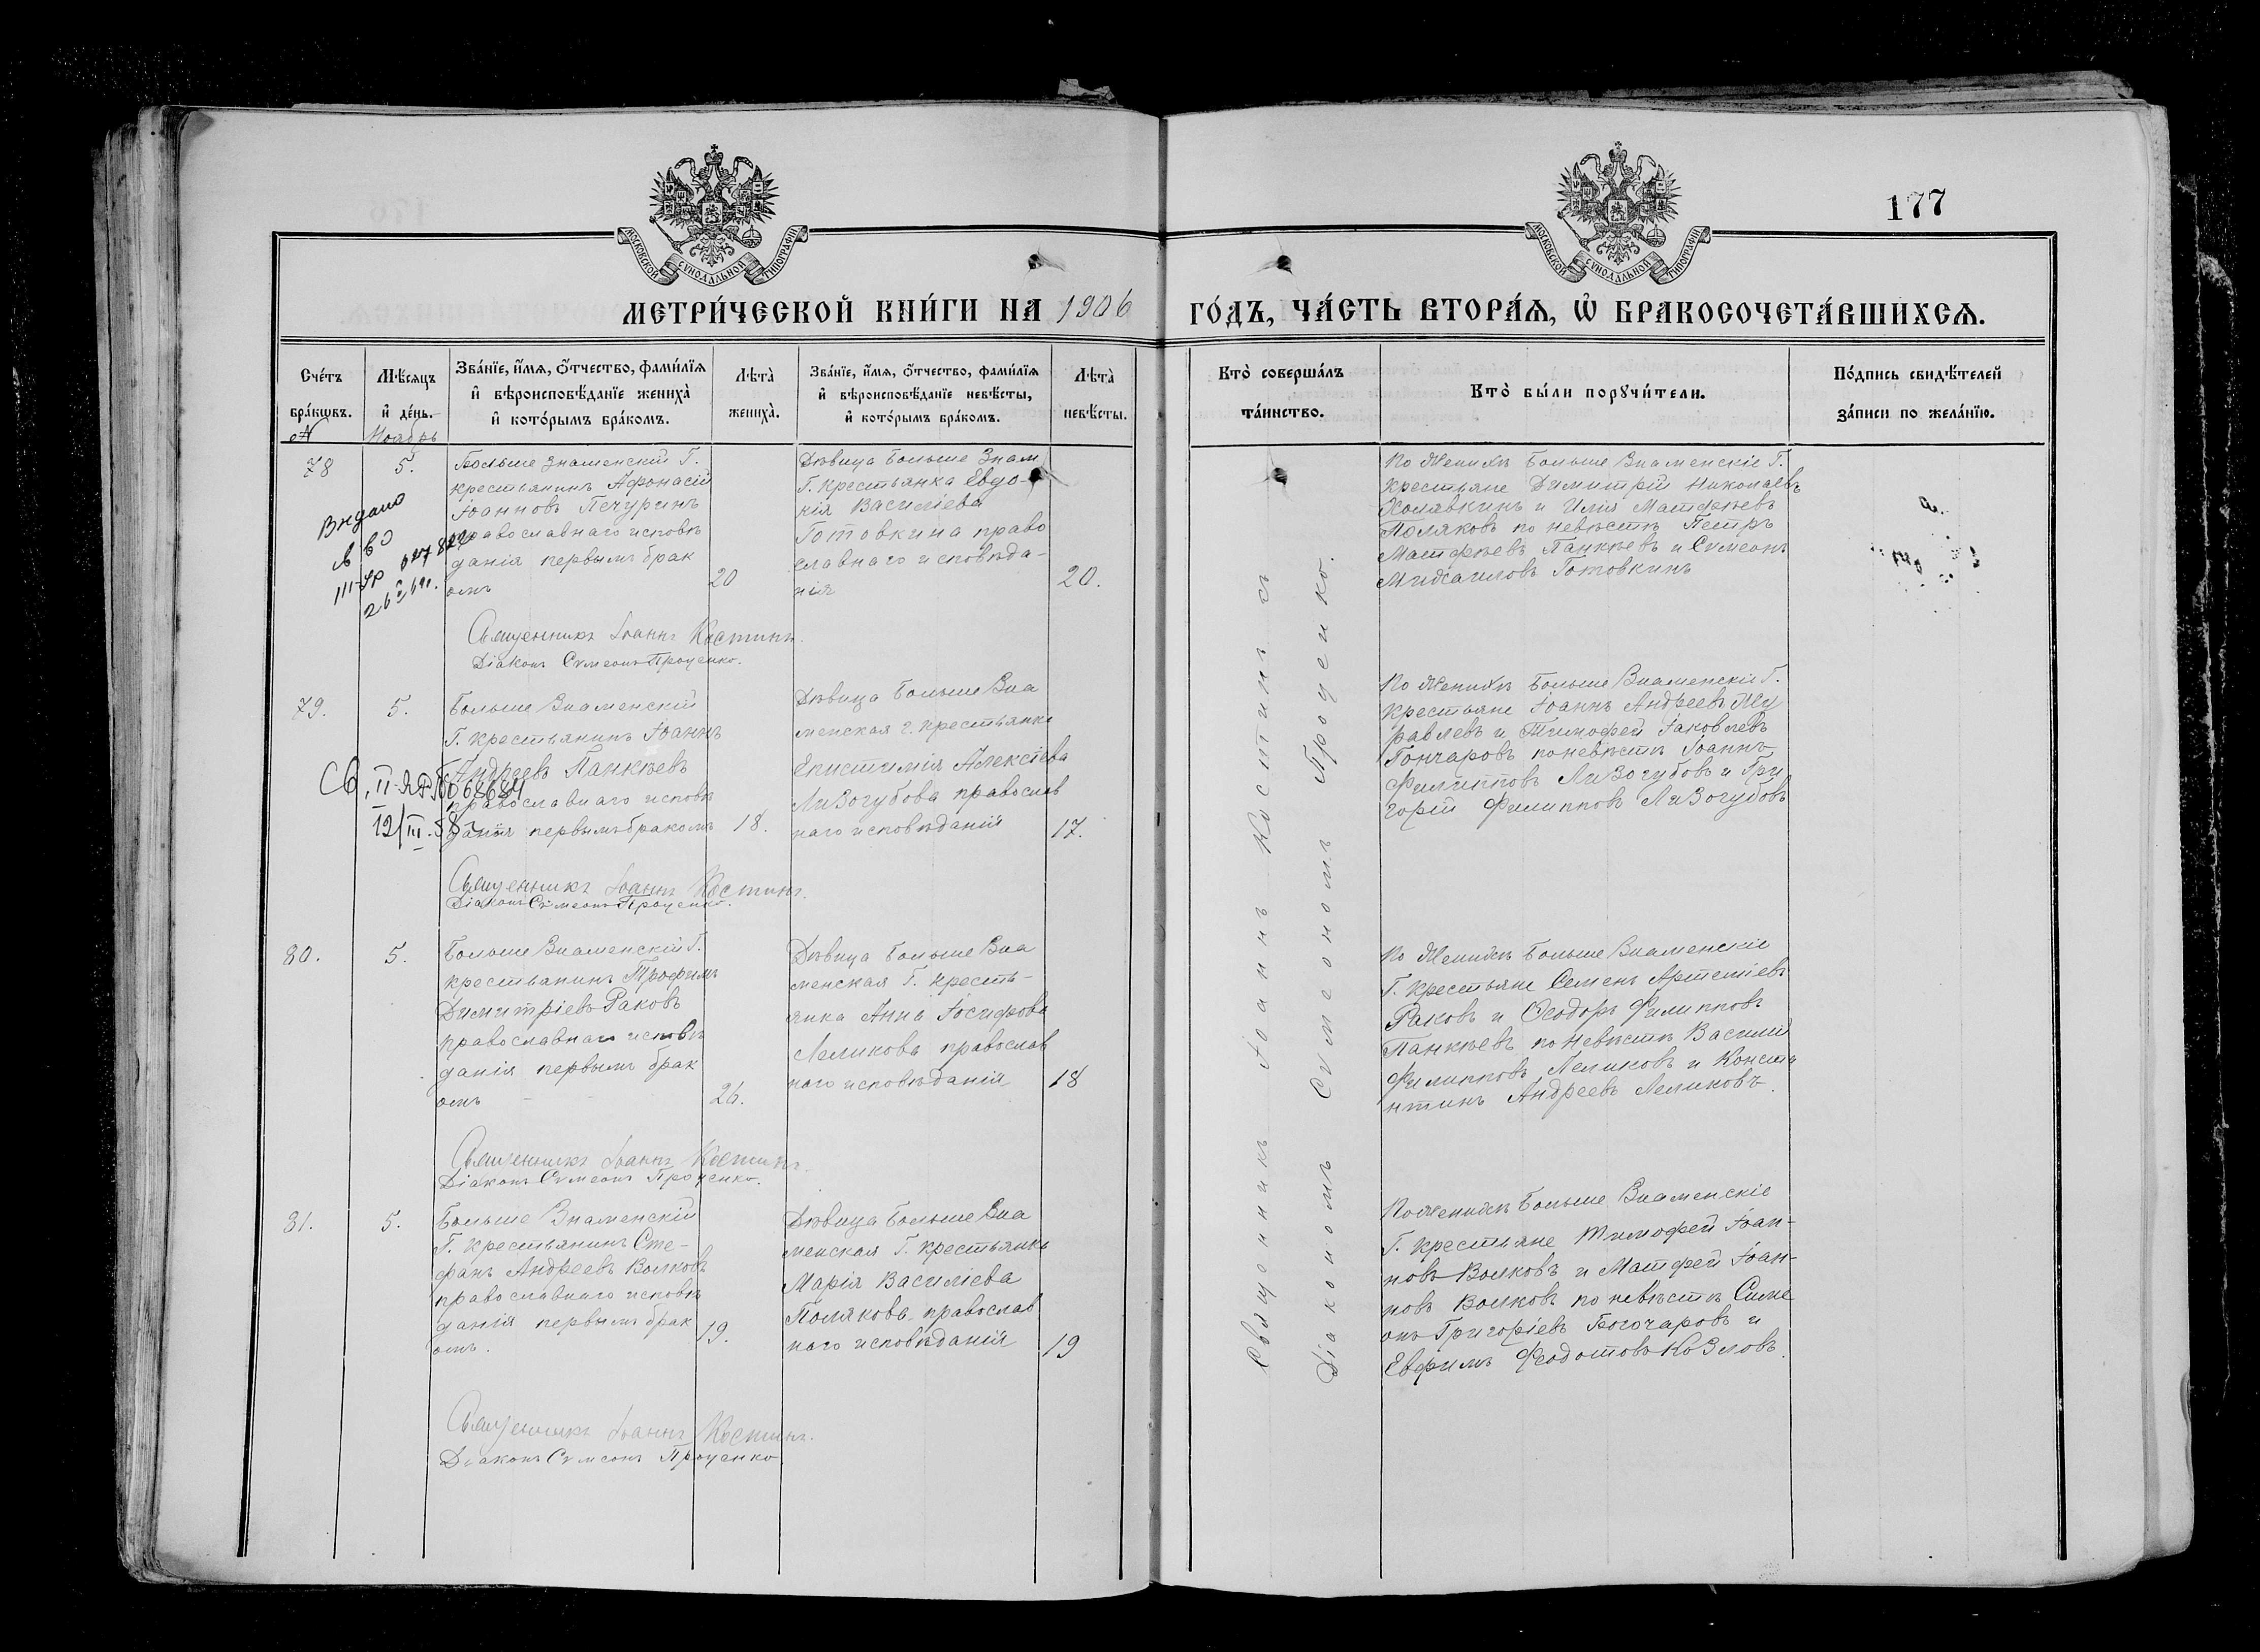 177
МОСКОВСКОЙ СУНОДАЛЬНОЙ ТИПОГРАФІИ
МОСКОВСКОЙ СУНОДАЛЬНОЙ ТИПОГРАФІИ
МЕТРИ́ЧЕСКОЙ КНИ́ГИ НА 1906 ГО́ДЪ, ЧА́СТЬ ВТОРА́Я, Ѡ БРАКОСОЧЕТА́ВШИХСЯ.
Сче́тъ бра́кѡвъ.
Мѣ́сяцъ и де́нь.
Зва́нїе, и́мя, о́тчество, фами́лїя и вѣроисповѣ́данїе жениха̀ и кото́рымъ бра́комъ.
Лѣта̀ жениха̀.
Зва́нїе, и́мя, о́тчество, фами́лїя и вѣроисповѣ́данїе невѣ́сты, и кото́рымъ бра́комъ.
Лѣта̀ невѣ́сты.
Кто̀ соверша́лъ та́инство.
Кто̀ бы́ли порꙋчи́тели.
По́дпись свидѣ́телей за́писи по жела́нїю.
№
Ноябрь
78
5.
Больше Знаменскій Г.
крестьянинъ Афонасій
Іоанновъ Печуринъ
православнаго исповѣ
данія первымъ брак
омъ
20
Дѣвица Больше Знам
Г. крестьянка Евдо-
кія Василіева
Готовкина право
славнаго исповѣда-
нія
20.
По Женихѣ Больше Знаменскіе Г.
крестьяне Димитрій Николаевъ
Холявкинъ и Илія Матфѣевъ
Поляковъ по невѣстѣ Петръ
Матфѣевъ Панкѣевъ и Сѵмеонъ
Михаиловъ Готовкинъ
Выдано
Священникъ Іоаннъ Костинъ.
Діаконъ Сѵмеонъ Проценко.
79.
5.
Больше Знаменскій
Г. крестьянинъ Іоаннъ
Андреевъ Панкѣевъ
православнаго исповѣ
данія первымъ бракомъ
18.
Дѣвица Больше Зна
менская Г. крестьянка
Епистимія Алексіева
Лизогубова православ
наго исповѣданія
17.
По Женихѣ Больше Знаменскіе Г.
крестьяне Іоаннъ Андреевъ Жу
равлевъ и Тимофей Іаковлевъ
Гончаровъ по невѣстѣ Іоаннъ
Филипповъ Лизогубовъ и Гри
горій Филипповъ Лизогубовъ
Св, II-ЯР № 068684
12/III.58 г
Священникъ Іоаннъ Костинъ.
Діаконъ Сѵмеонъ Проценко.
80.
5.
Больше Знаменскій Г.
крестьянинъ Трофимъ
Димитріевъ Раковъ
православнаго исповѣ
данія первымъ брак
омъ
26.
Дѣвица Больше Зна
менская Г. кресть-
янка Анна Іосифова
Леликова православ
наго исповѣданія
18
По Женихѣ Больше Знаменскіе
Г. крестьяне Семенъ Артеміевъ
Раковъ и Ѳеодоръ Филипповъ
Панкѣевъ по невѣстѣ Василій
Филипповъ Леликовъ и Конста
нтинъ Андреевъ Леликовъ.
Священникъ Іоаннъ Костинъ.
Діаконъ Сѵмеонъ Проценко.
81.
5.
Больше Знаменскій
Г. крестьянинъ Сте-
фанъ Андреевъ Волковъ
православнаго исповѣ
данія первымъ брак
омъ.
19.
Дѣвица Больше Зна
менская Г. крестьянка
Марія Василіева
Полякова православ
наго исповѣданія
19
По Женихѣ Больше Знаменскіе
Г. крестьяне Тимофей Іоан-
новъ Волковъ и Матфей Іоан-
новъ Волковъ по невѣстѣ Симе
онъ Григоріевъ Гогочаровъ и
Евфимъ Феодотовъ Козловъ.
Священникъ Іоаннъ Костинъ.
Діаконъ Сѵмеонъ Проценко
Священникъ Іоаннъ Костинъ съ
Діакономъ Сѵмеономъ Проценко.